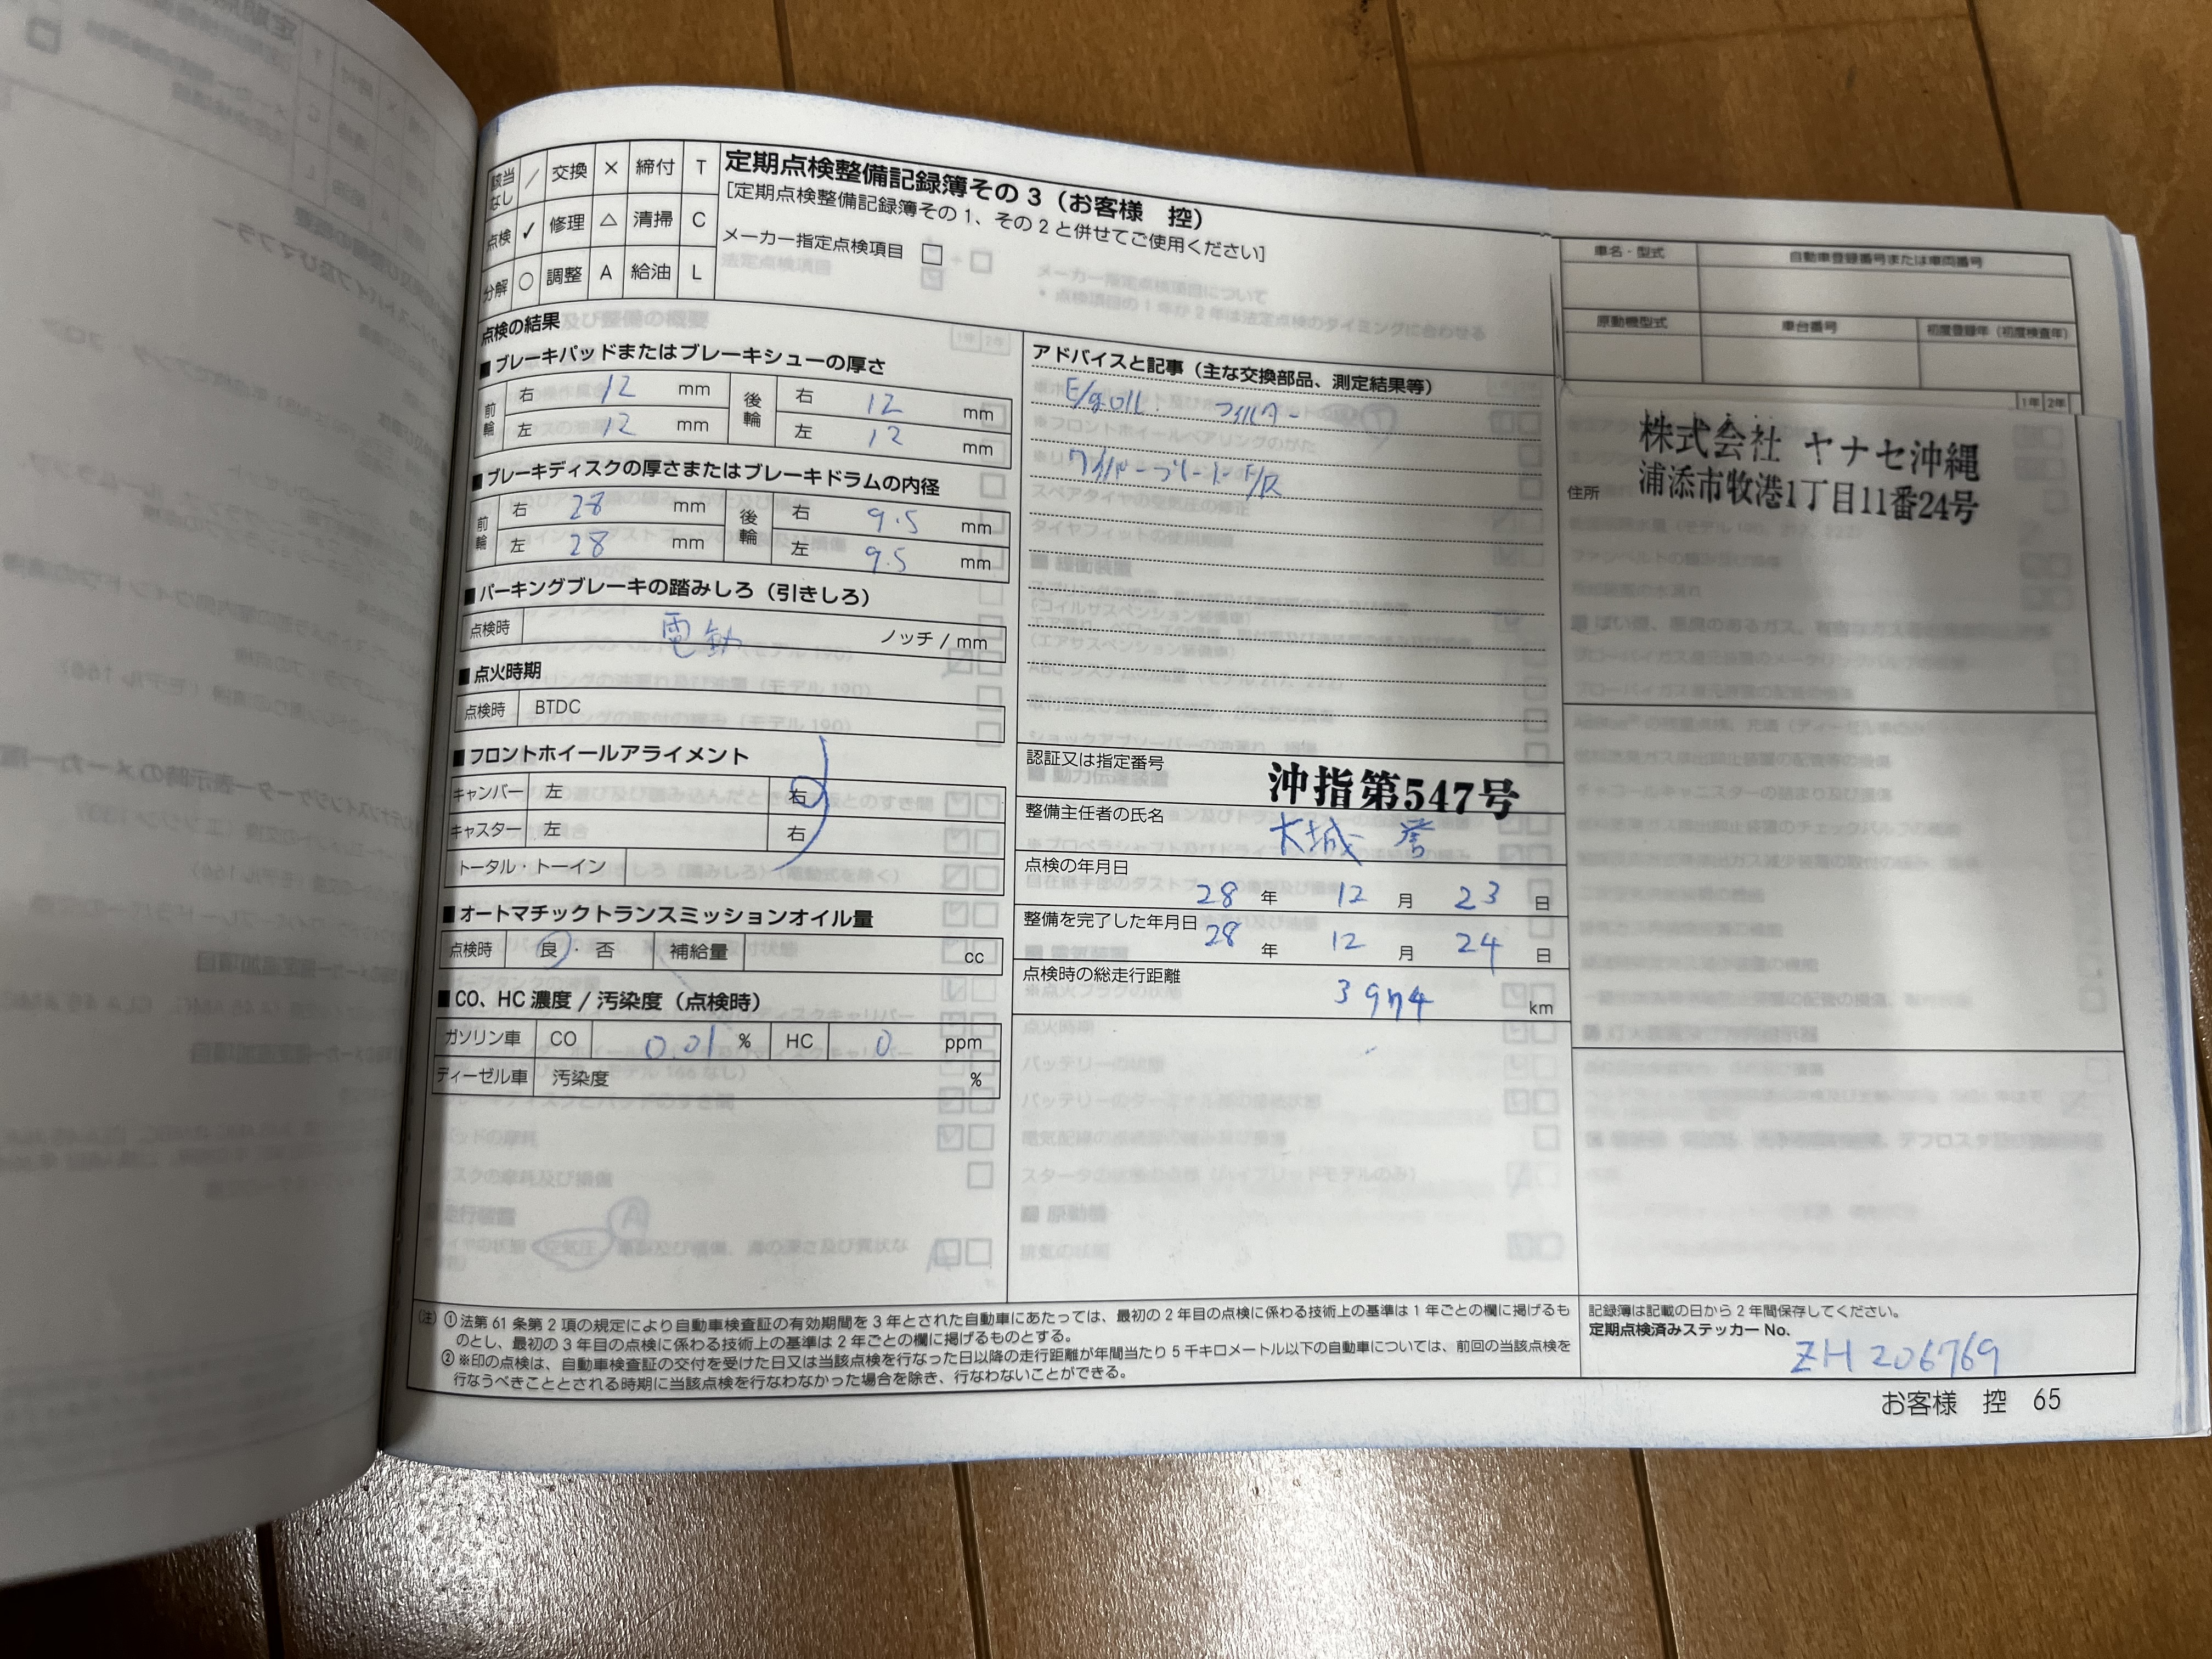 該当なし ／ 交換 × 締付 T
点検 ✓ 修理 △ 清掃 C
分解 ○ 調整 A 給油 L
定期点検整備記録簿その3（お客様　控）
［定期点検整備記録簿その1、その2と併せてご使用ください］
メーカー指定点検項目 □
点検の結果
■ブレーキパッドまたはブレーキシューの厚さ
前輪 右 12 mm 後輪 右 12 mm
左 12 mm 左 12 mm
■ブレーキディスクの厚さまたはブレーキドラムの内径
前輪 右 28 mm 後輪 右 9.5 mm
左 28 mm 左 9.5 mm
■パーキングブレーキの踏みしろ（引きしろ）
点検時 電動 ノッチ / mm
■点火時期
点検時 BTDC
■フロントホイールアライメント
キャンバー 左 右
キャスター 左 右
トータル・トーイン
■オートマチックトランスミッションオイル量
点検時 良・否 補給量 cc
■CO、HC濃度 / 汚染度（点検時）
ガソリン車 CO 0.01 % HC 0 ppm
ディーゼル車 汚染度 %
アドバイスと記事（主な交換部品、測定結果等）
E/gOIL. フィルター
ワイパーブレード F/R
認証又は指定番号
沖指第547号
整備主任者の氏名
大城 誉
点検の年月日
28 年 12 月 23 日
整備を完了した年月日
28 年 12 月 24 日
点検時の総走行距離
3974 km
車名・型式 自動車登録番号または車両番号
原動機型式 車台番号 初度登録年（初度検査年）
株式会社 ヤナセ沖縄
住所 浦添市牧港1丁目11番24号
（注）①法第61条第2項の規定により自動車検査証の有効期間を3年とされた自動車にあたっては、最初の2年目の点検に係わる技術上の基準は1年ごとの欄に掲げるも
のとし、最初の3年目の点検に係わる技術上の基準は2年ごとの欄に掲げるものとする。
②※印の点検は、自動車検査証の交付を受けた日又は当該点検を行なった日以降の走行距離が年間当たり5千キロメートル以下の自動車については、前回の当該点検を
行なうべきこととされる時期に当該点検を行なわなかった場合を除き、行なわないことができる。
記録簿は記載の日から2年間保存してください。
定期点検済みステッカーNo.
ZH206769
お客様　控　65